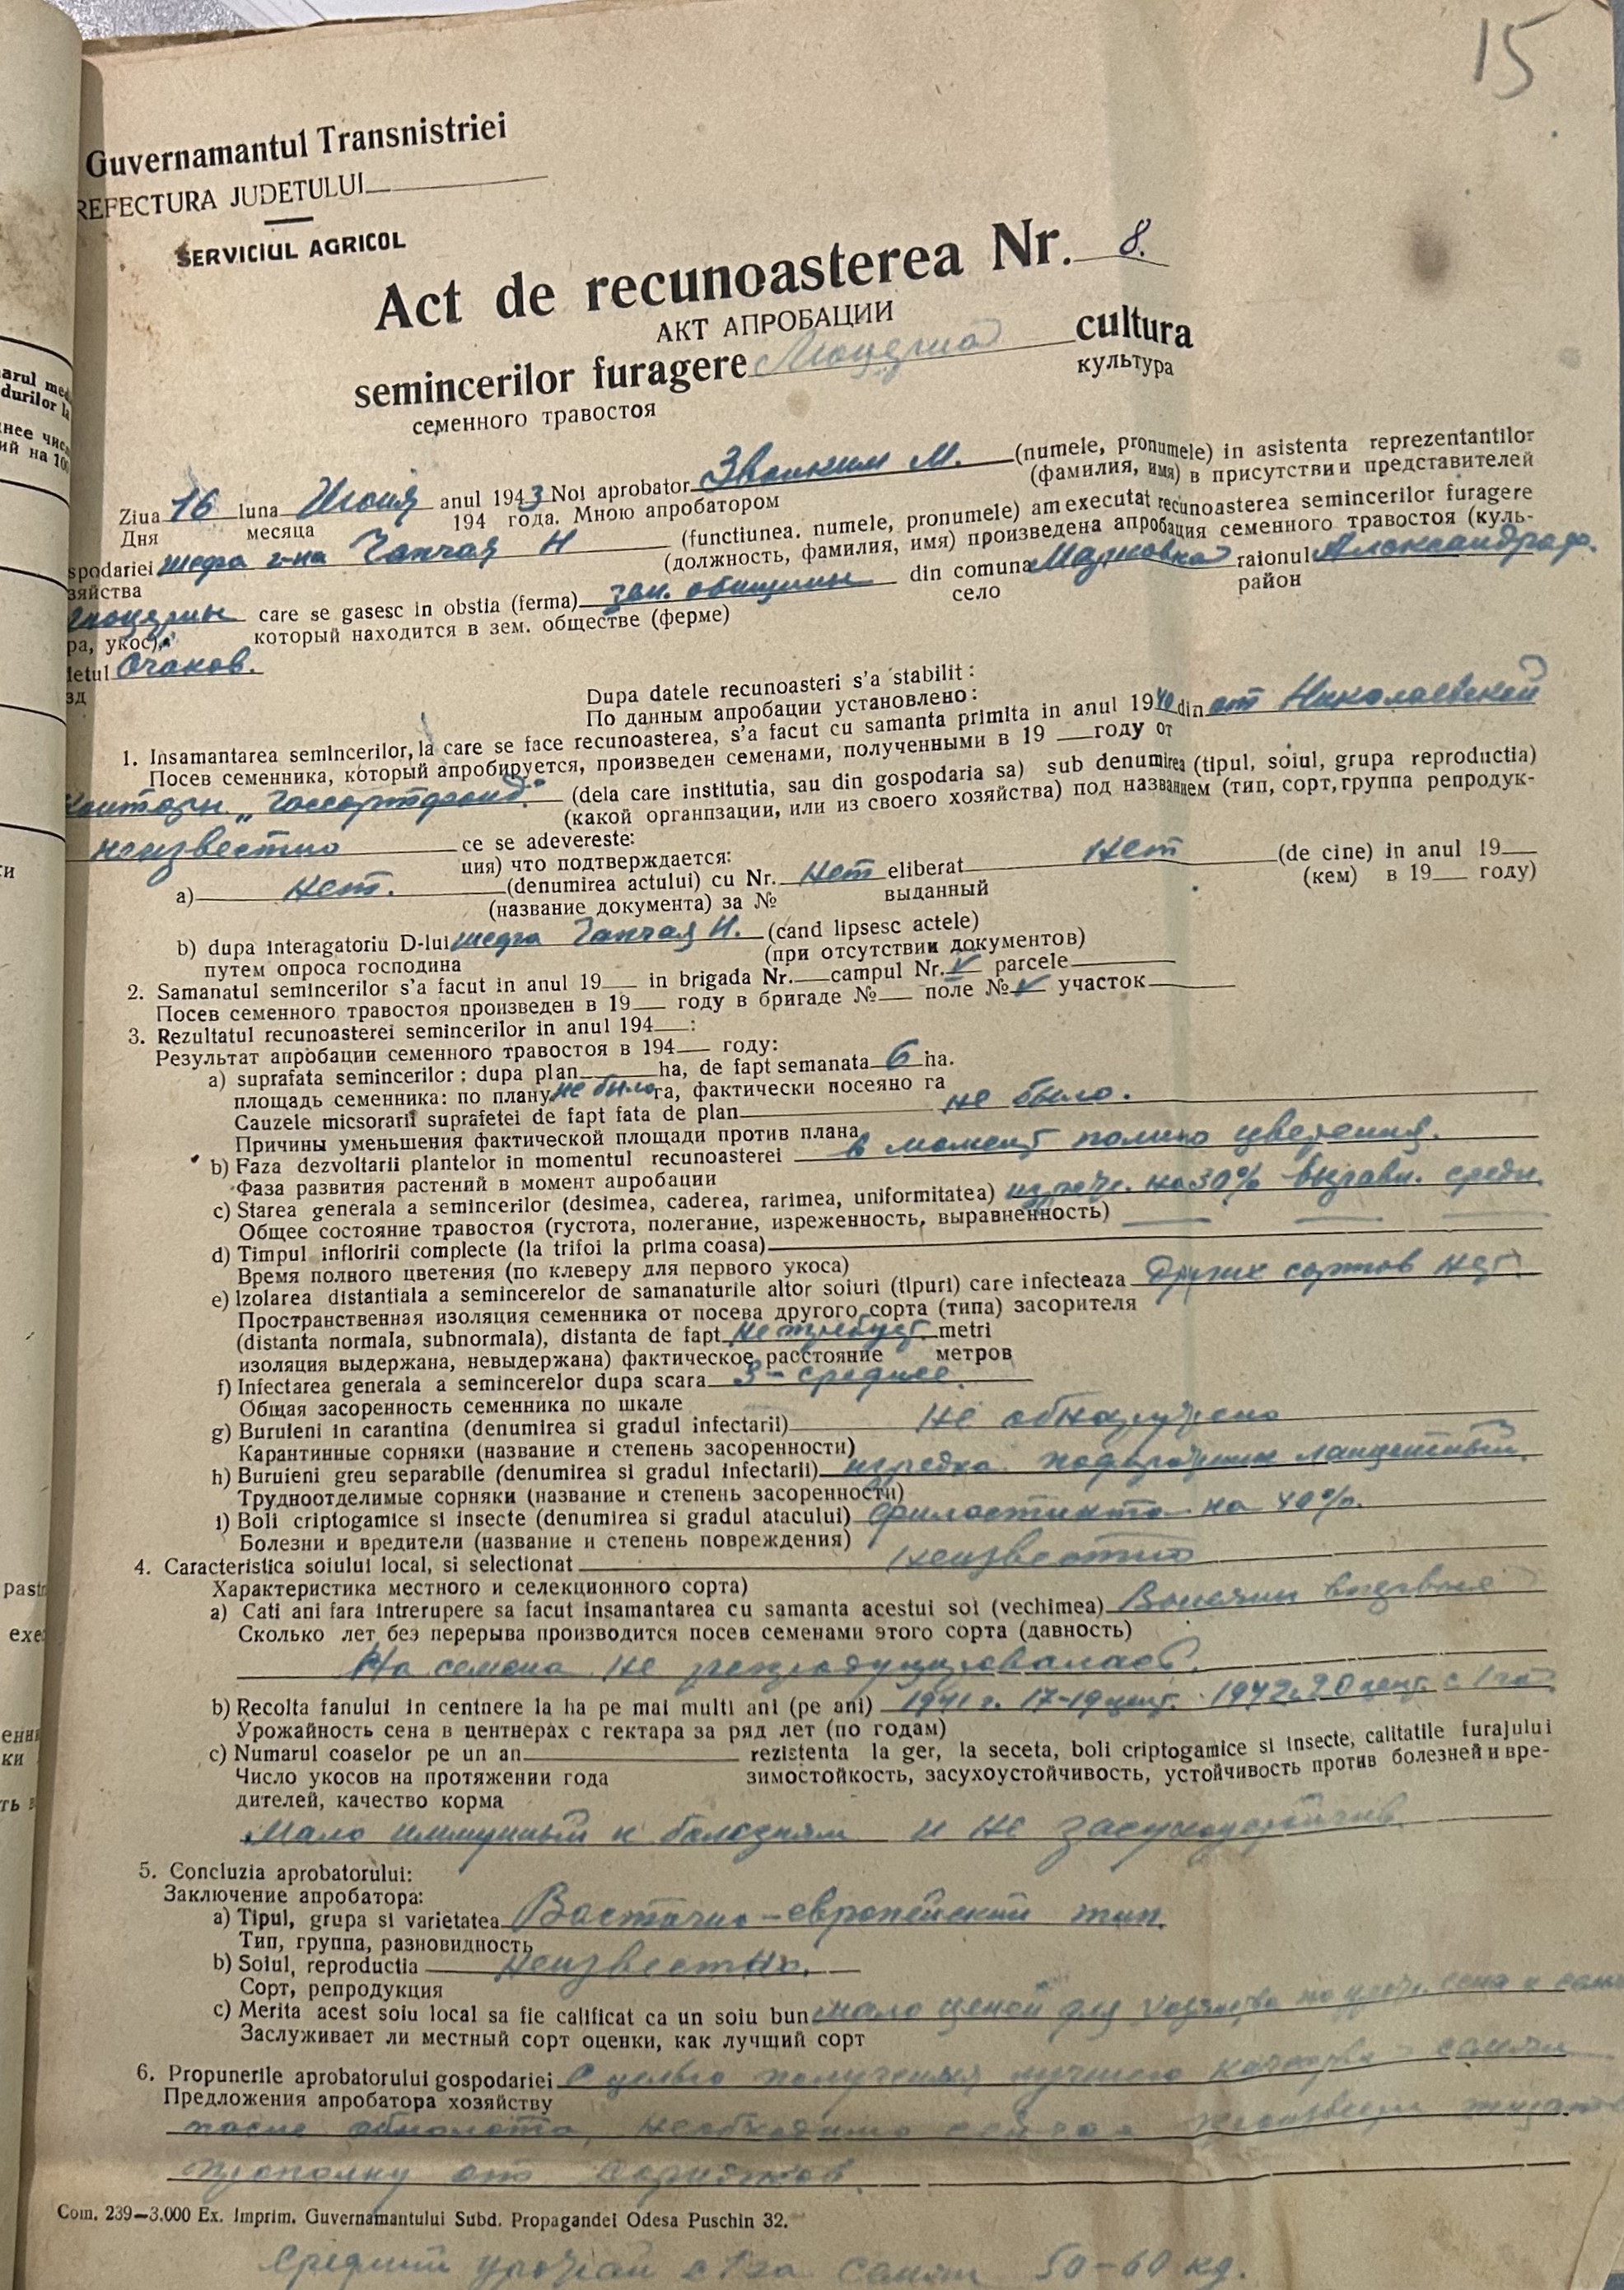 15
Guvernamantul Transnistriei
REFECTURA JUDETULUI
SERVICIUL AGRICOL
Act de recunoasterea Nr. 8.
АКТ АПРОБАЦИИ
semincerilor furagere Люцерна cultura
семенного травостоя культура
Ziua 16 luna Июня anul 1943 Noi aprobator М. (numele, pronumele) in asistenta reprezentantilor
Дня месяца 194 года. Мною апробатором (фамилия, имя) в присутствии представителей
spodariei шефа г-на Чапчая Н (functiunea. numele, pronumele) am executat recunoasterea semincerilor furagere
зяйства (должность, фамилия, имя) произведена апробация семенного травостоя (куль-
люцерны care se gasesc in obstia (ferma) зем. общины din comuna raionul
ра, укос), который находится в зем. обществе (ферме) село район
letul Очаков.
зд
Dupa datele recunoasteri s'a stabilit:
По данным апробации установлено:
1. Insamantarea semincerilor, la care se face recunoasterea, s'a facut cu samanta primita in anul 1940 din от Николаевской
Посев семенника, который апробируется, произведен семенами, полученными в 19 году от
конторы „Госсортфонд" (dela care institutia, sau din gospodaria sa) sub denumirea (tipul, soiul, grupa reproductia)
(какой организации, или из своего хозяйства) под названием (тип, сорт, группа репродук-
неизвестно ce se adevereste:
ция) что подтверждается:
a) нет. (denumirea actului) cu Nr. нет eliberat нет (de cine) in anul 19
(название документа) за № выданный (кем) в 19 году)
b) dupa interagatoriu D-lui шефа Чапчая Н. (cand lipsesc actele)
путем опроса господина (при отсутствии документов)
2. Samanatul semincerilor s'a facut in anul 19 in brigada Nr. campul Nr. V parcele
Посев семенного травостоя произведен в 19 году в бригаде № поле № V участок
3. Rezultatul recunoasterei semincerilor in anul 194 :
Результат апробации семенного травостоя в 194 году:
a) suprafata semincerilor; dupa plan ha, de fapt semanata 6 ha.
площадь семенника: по плану не было га, фактически посеяно га
Cauzele micsorarii suprafetei de fapt fata de plan не было.
Причины уменьшения фактической площади против плана
b) Faza dezvoltarii plantelor in momentul recunoasterei в момент полного цветения.
Фаза развития растений в момент апробации
c) Starea generala a semincerilor (desimea, caderea, rarimea, uniformitatea) изреж. на 30% выравн. средн.
Общее состояние травостоя (густота, полегание, изреженность, выравненность)
d) Timpul infloririi complecte (la trifoi la prima coasa)
Время полного цветения (по клеверу для первого укоса)
e) Izolarea distantiala a semincerelor de samanaturile altor soiuri (tipuri) care infecteaza Других сортов нет.
Пространственная изоляция семенника от посева другого сорта (типа) засорителя
(distanta normala, subnormala), distanta de fapt не требует. metri
изоляция выдержана, невыдержана) фактическое расстояние метров
f) Infectarea generala a semincerelor dupa scara 3 - среднее.
Общая засоренность семенника по шкале
g) Buruieni in carantina (denumirea si gradul infectarii) не обнаружено
Карантинные сорняки (название и степень засоренности)
h) Buruieni greu separabile (denumirea si gradul infectarii) изредка подорожник ланцетный.
Трудноотделимые сорняки (название и степень засоренности)
i) Boli criptogamice si insecte (denumirea si gradul atacului) на 40%.
Болезни и вредители (название и степень повреждения)
4. Caracteristica soiului local, si selectionat неизвестно
Характеристика местного и селекционного сорта)
a) Cati ani fara intrerupere sa facut insamantarea cu samanta acestui soi (vechimea) впервые
Сколько лет без перерыва производится посев семенами этого сорта (давность)
На семена не репродуцировалась.
b) Recolta fanului in centnere la ha pe mai multi ani (pe ani) 1941 г. 17-19 цент. 1942 г. 20 цент. с 1 га
Урожайность сена в центнерах с гектара за ряд лет (по годам)
c) Numarul coaselor pe un an rezistenta la ger, la seceta, boli criptogamice si insecte, calitatile furajului
Число укосов на протяжении года зимостойкость, засухоустойчивость, устойчивость против болезней и вре-
дителей, качество корма
Мало иммунный к болезням и не засухоустойчив.
5. Concluzia aprobatorului:
Заключение апробатора:
a) Tipul, grupa si varietatea Восточно-европейский тип.
Тип, группа, разновидность
b) Soiul, reproductia неизвестны.
Сорт, репродукция
c) Merita acest soiu local sa fie calificat ca un soiu bun мало для сена и
Заслуживает ли местный сорт оценки, как лучший сорт
6. Propunerile aprobatorului gospodariei С целью получения лучшего качества семян
Предложения апробатора хозяйству
после обмолота, необходимо сейчас произвести
прополку от сорняков
Com. 239—3.000 Ex. Imprim. Guvernamantului Subd. Propagandei Odesa Puschin 32.
Средний урожай с 1 га семян 50-60 кг.